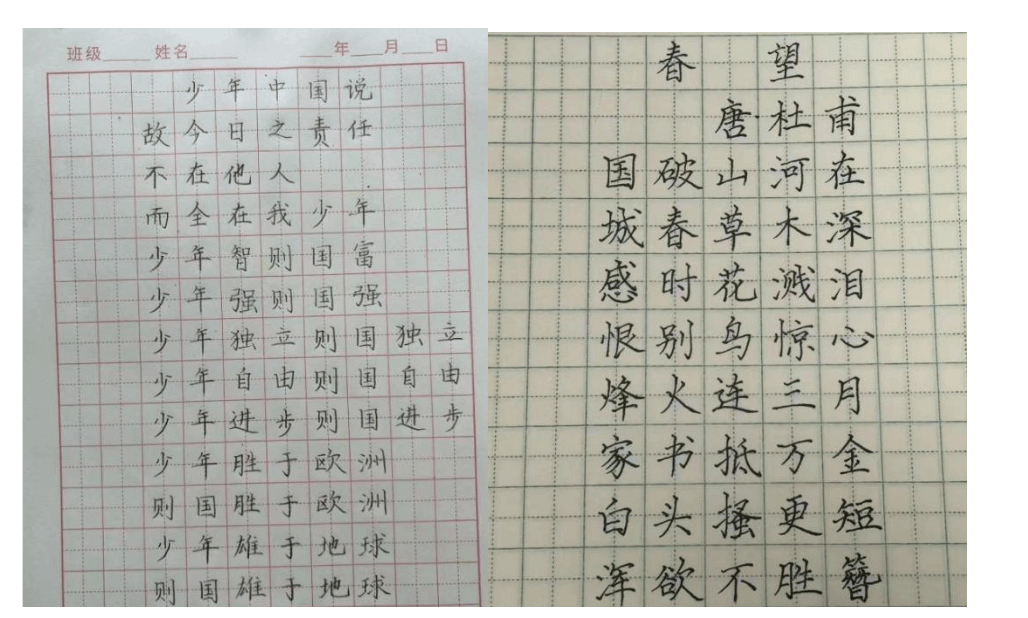 班级 姓名 年 月 日
少年中国说
故今日之责任
不在他人
而全在我少年
少年智则国富
少年强则国强
少年独立则国独立
少年自由则国自由
少年进步则国进步
少年胜于欧洲
则国胜于欧洲
少年雄于地球
则国雄于地球
春望
唐·杜甫
国破山河在
城春草木深
感时花溅泪
恨别鸟惊心
烽火连三月
家书抵万金
白头搔更短
浑欲不胜簪